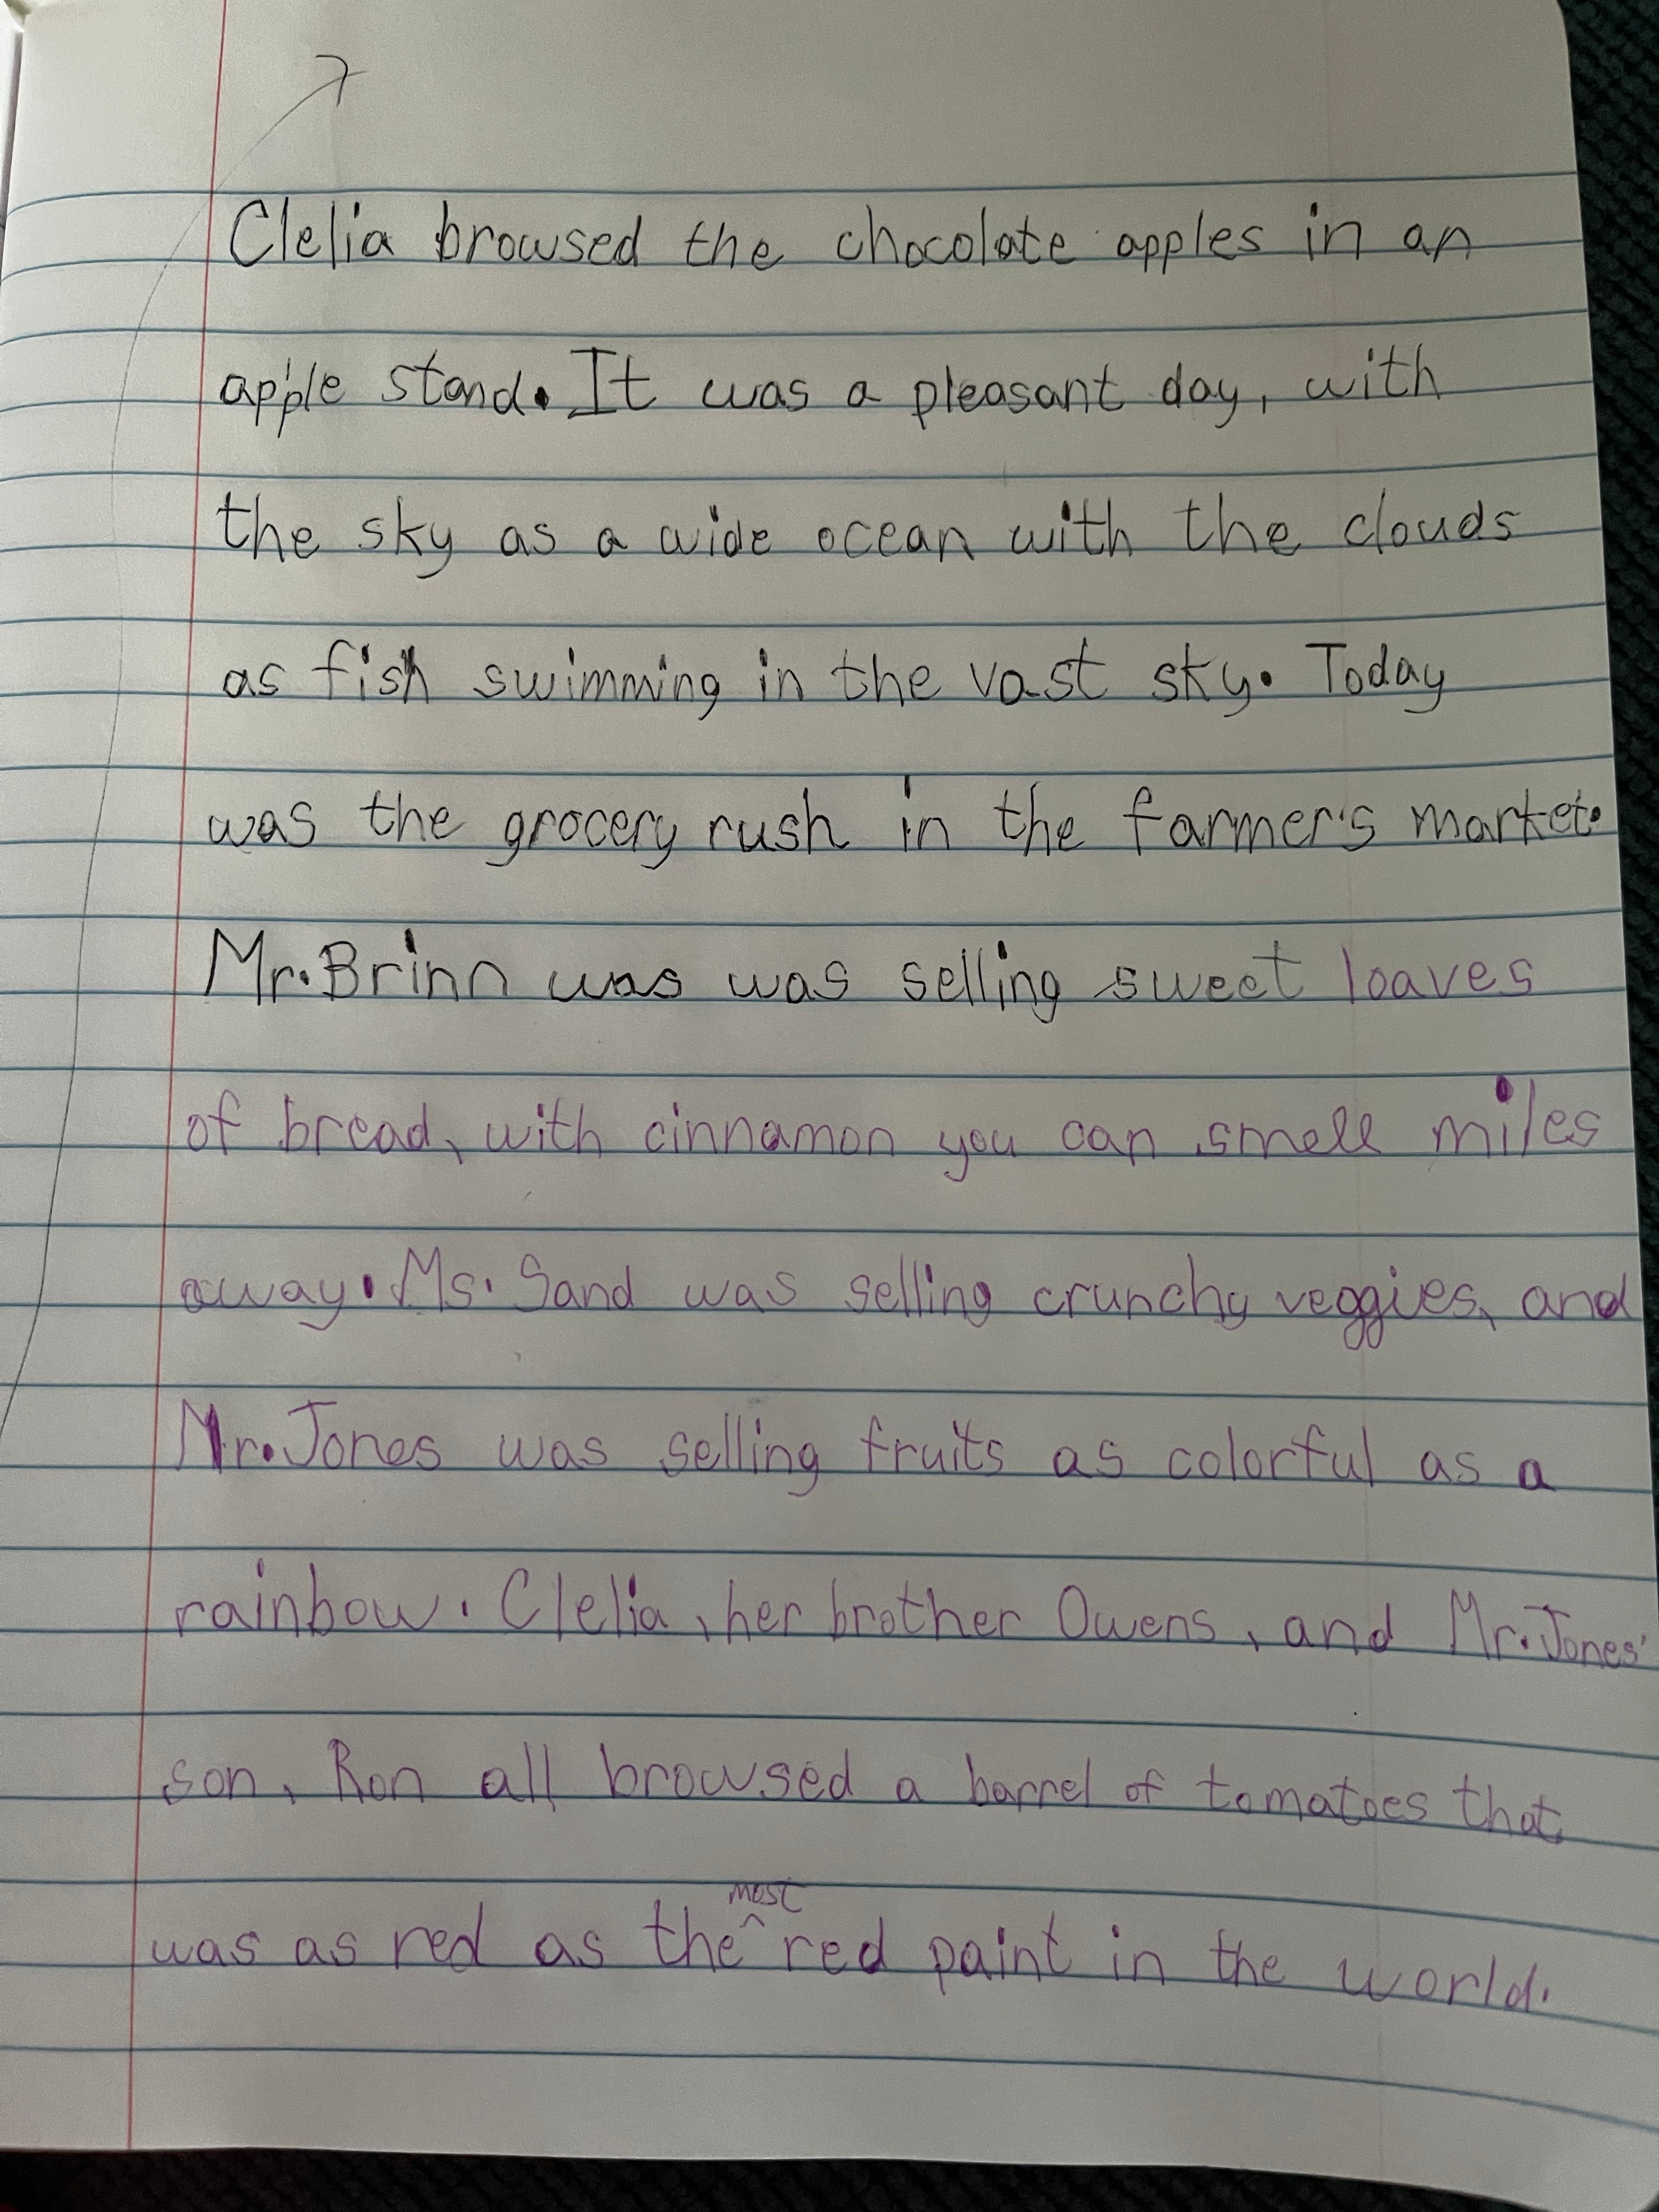 Clelia browsed the chocolate apples in an
apple stand. It was a pleasant day, with
the sky as a wide ocean with the clouds
as fish swimming in the vast sky. Today
was the grocery rush in the farmer's market.
Mr. Brinn was was selling sweet loaves
of bread, with cinnamon you can smell miles
away. Ms. Sand was selling crunchy veggies, and
Mr. Jones was selling fruits as colorful as a
rainbow. Clelia, her brother Owens, and Mr. Jones'
son, Ron all browsed a barrel of tomatoes that
was as red as the ^most red paint in the world.